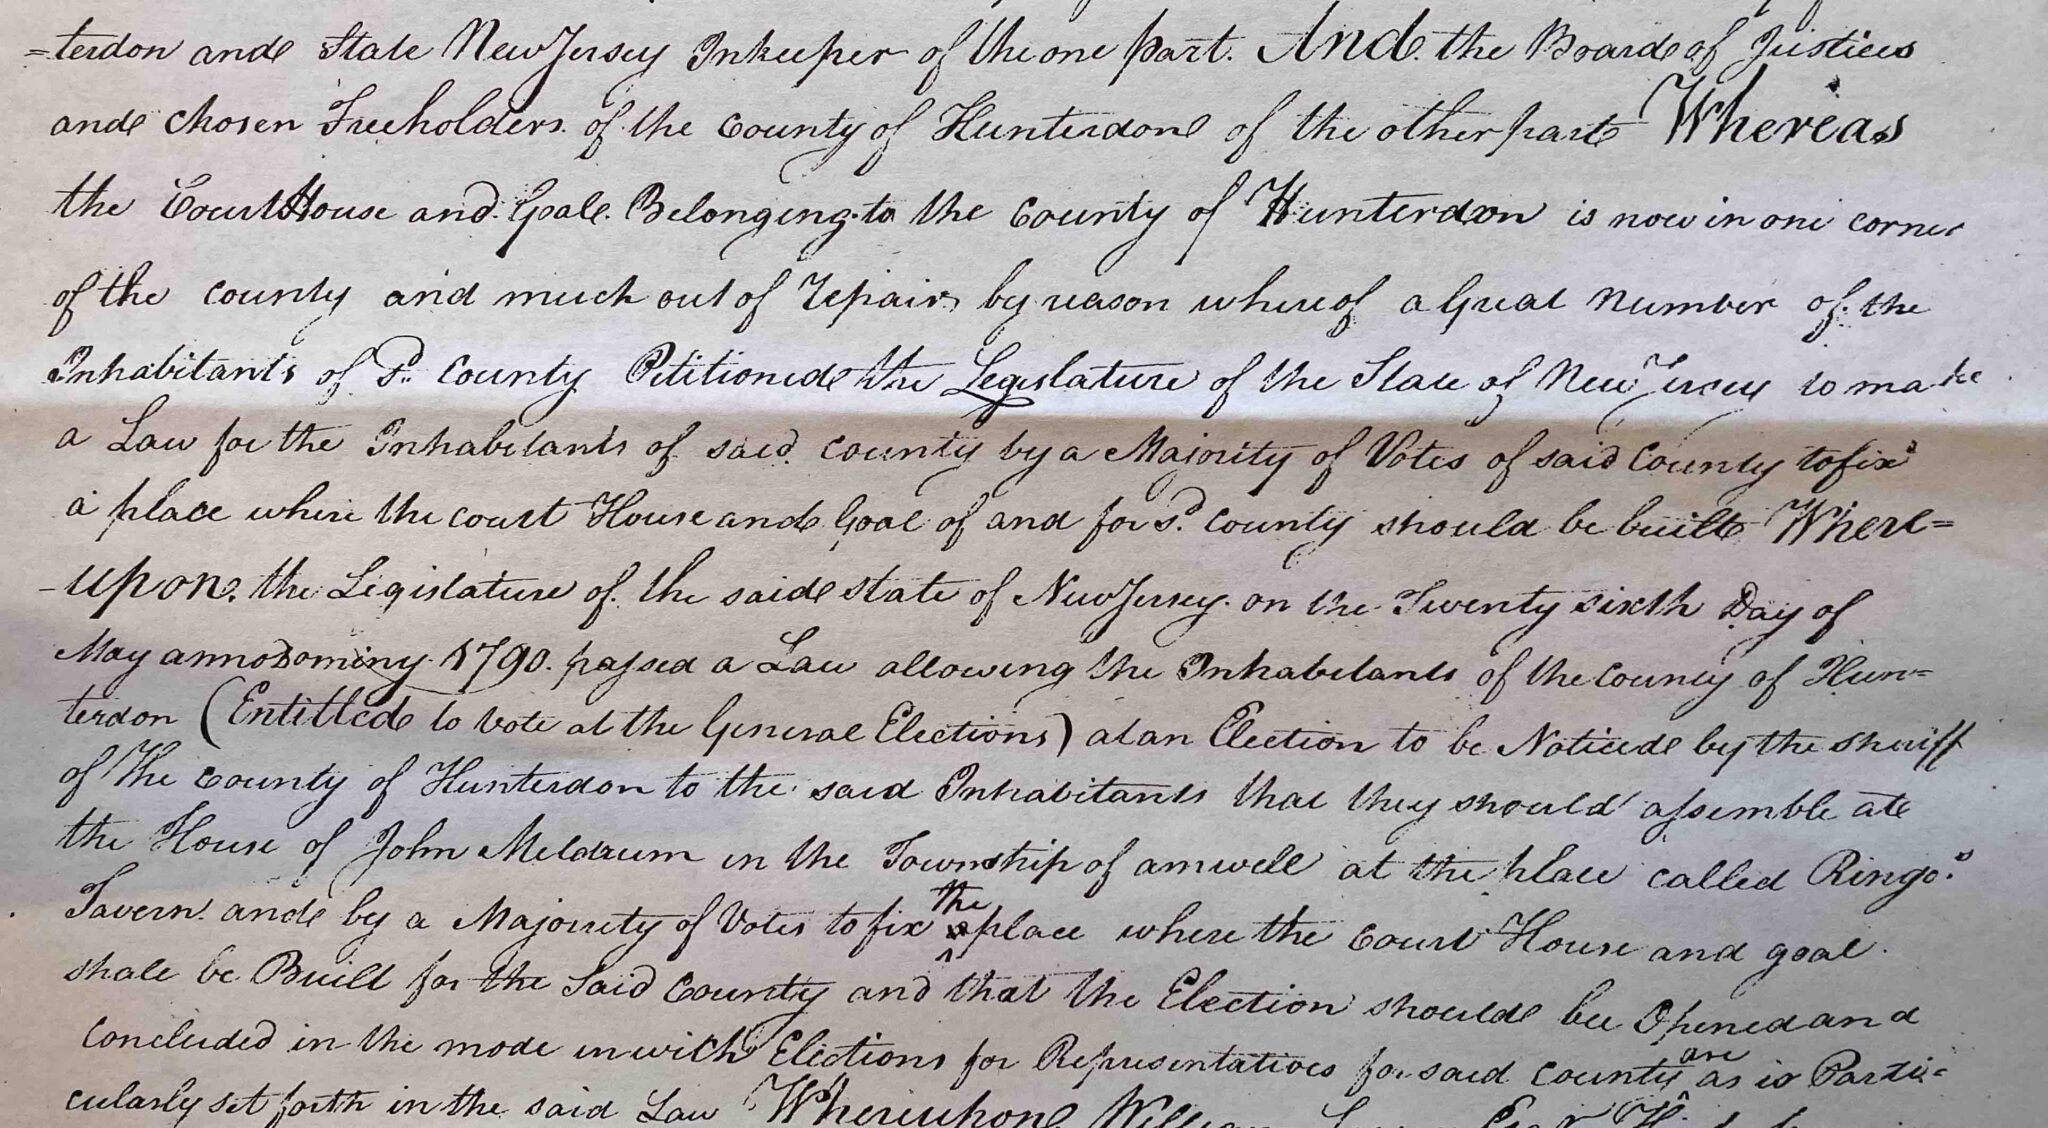 =terdon and State New Jersey Inkeeper of the one part. And the Board of Justices
and chosen Freeholders of the County of Hunterdon of the other part Whereas
the Court House and Goal Belonging to the County of Hunterdon is now in one corner
of the county and much out of repair by reason whereof a Great Number of the
Inhabitants of Sd. County Petitioned the Legislature of the State of New Jersey to make
a Law for the Inhabitants of said County by a Majority of Votes of said County to fix
a place where the court House and Goal of and for Sd. County should be built Where=
-upon the Legislature of the said state of New Jersey on the Twenty sixth Day of
May annodominy 1790. passed a Law allowing the Inhabitants of the County of Hun=
terdon (Entitled to vote at the General Elections) at an Election to be Noticed by the sheriff
of The County of Hunterdon to the said Inhabitants that they should assemble at
the House of John Meldrum in the Township of amwell at the place called Ringo's
Tavern and by a Majority of Votes to fix the place where the Court House and goal
shall be Built for the Said County and that the Election should be Opened and
Concluded in the mode in wich Elections for Representatives for said County are as is Parti=
cularly set forth in the said Law Whereupon William